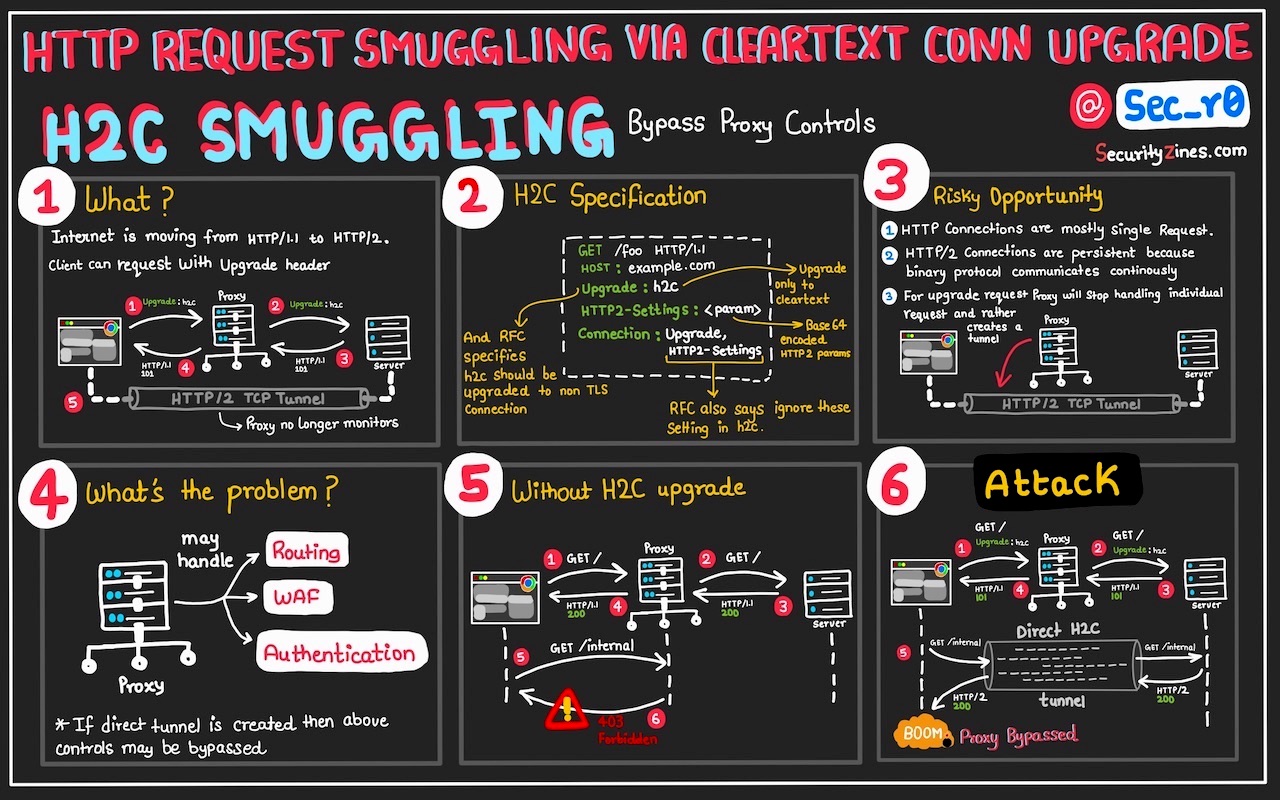 HTTP REQUEST SMUGGLING VIA CLEARTEXT CONN UPGRADE
H2C SMUGGLING
Bypass Proxy Controls
@ Sec_r0
SecurityZines.com
1 What?
Internet is moving from HTTP/1.1 to HTTP/2.
Client can request With Upgrade header
Proxy
1 Upgrade: h2c
2 Upgrade: h2c
HTTP/1.1
101
4
HTTP/1.1
101
3
Server
5
HTTP/2 TCP Tunnel
Proxy no longer monitors
2 H2C Specification
GET /foo HTTP/1.1
HOST: example.com
Upgrade: h2c
HTTP2-Settings: <param>
Connection: Upgrade,
HTTP2-Settings
Upgrade
only to
cleartext
Base 64
encoded
HTTP2 params
And RFC
specifies
h2c should be
upgraded to non TLS
Connection
RFC also says ignore these
Setting in h2c.
3 Risky Opportunity
1 HTTP Connections are mostly Single Request.
2 HTTP/2 Connections are persistent because
binary protocol communicates continously
3 For upgrade request Proxy will Stop handling individual
request and rather
creates a
tunnel
Proxy
Server
HTTP/2 TCP Tunnel
4 What's the problem?
may
handle
Routing
WAF
Authentication
Proxy
* If direct tunnel is created then above
controls may be bypassed
5 Without H2C upgrade
Proxy
1 GET /
2 GET /
HTTP/1.1
200
4
HTTP/1.1
200
3
Server
5
GET /internal
6
403
Forbidden
6 Attack
GET /
1 Upgrade: h2c
Proxy
GET /
2 Upgrade: h2c
HTTP/1.1
101
4
HTTP/1.1
101
3
Server
Direct H2C
5
GET /internal
GET /internal
HTTP/2
200
HTTP/2
200
tunnel
BOOM
Proxy Bypassed